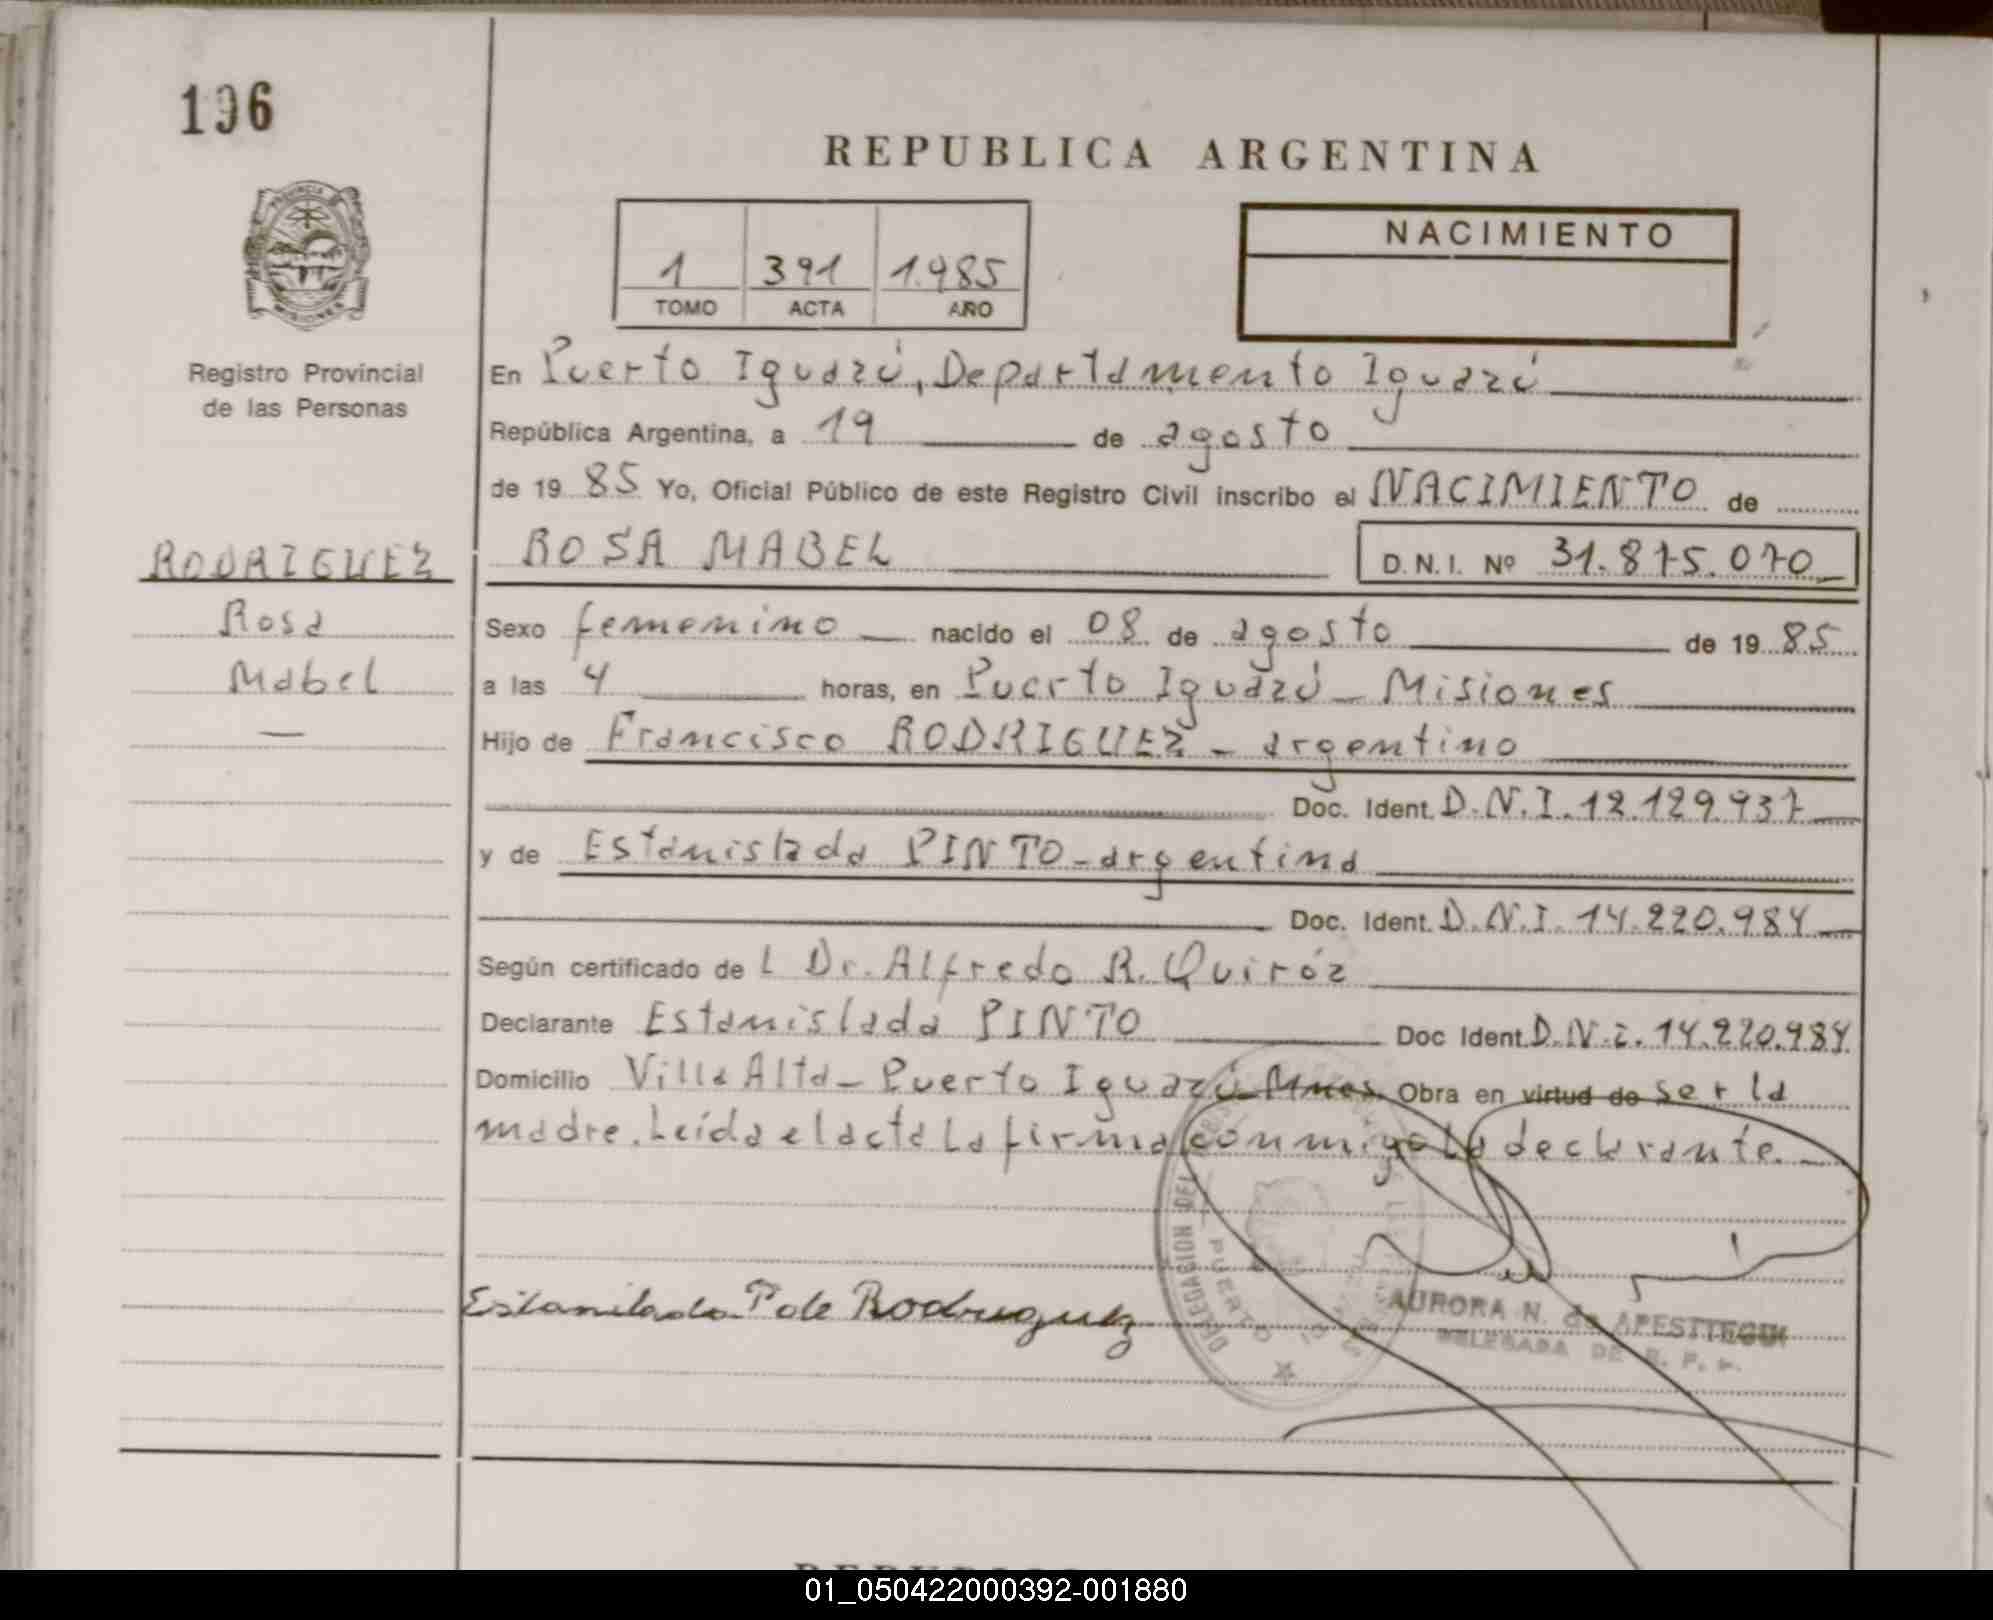 196
REPUBLICA ARGENTINA
PROVINCIA
MISIONES
1 391 1.985
TOMO ACTA AÑO
NACIMIENTO
Registro Provincial
de las Personas
En Puerto Iguazú, Departamento Iguazú
República Argentina, a 19 de agosto
de 19 85 Yo, Oficial Público de este Registro Civil inscribo el NACIMIENTO de
RODRIGUEZ
Rosa
Mabel
ROSA MABEL D.N.I. Nº 31.875.070
Sexo femenino nacido el 08 de agosto de 19 85
a las 4 horas, en Puerto Iguazú - Misiones
Hijo de Francisco RODRIGUEZ - argentino
Doc. Ident. D.N.I. 12.129.937
y de Estanislada PINTO - argentina
Doc. Ident. D.N.I. 14.220.984
Según certificado de L Dr. Alfredo R. Quiróz
Declarante Estanislada PINTO Doc Ident. D.N.i. 14.220.984
Domicilio Villa Alta - Puerto Iguazú Mnes. Obra en virtud de ser la
madre. Leída el acta La firma conmigo la declarante.
Estanilada P de Rodriguez
DELEGACION DEL
PUERTO
AURORA N. de APESTEGUI
DELEGADA DE R. P. P.
01_050422000392-001880